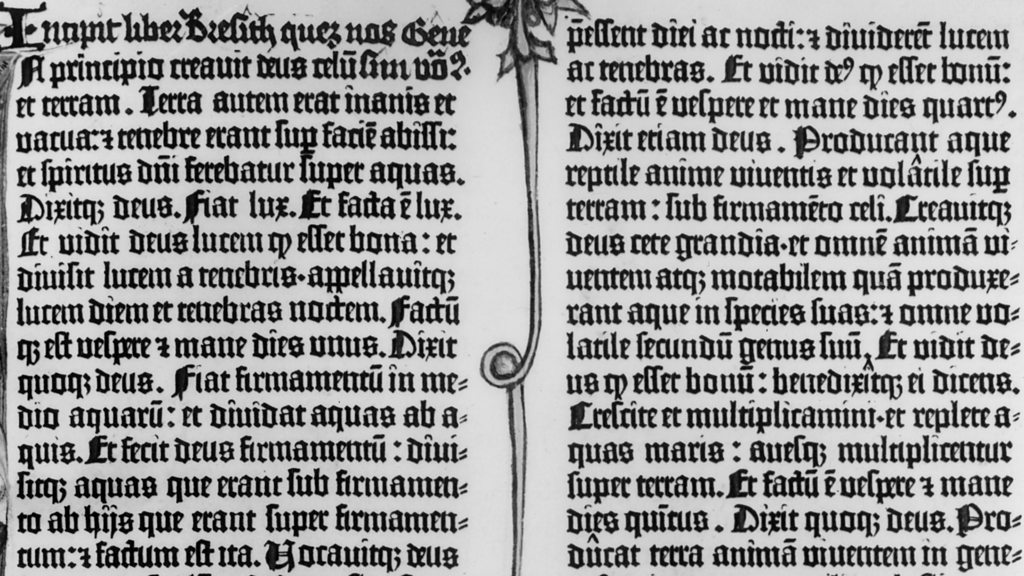 Incipit liber Bresith quez nos Gene
A principio creavit deus celū sim vō⁊.
et terram. Terra autem erat inanis et
vacua: ⁊ tenebre erant suꝑ faciē abissi:
et spiritus dn̄i ferebatur super aquas.
Dixitqꝫ deus. Fiat lux. Et facta ē lux.
Et vidit deus lucem ꝙ esset bona: et
divisit lucem a tenebris·appellavitqꝫ
lucem diem et tenebras noctem. Factū
qꝫ est vespere ⁊ mane dies unus. Dixit
quoqꝫ deus. Fiat firmamentū in me-
dio aquarū: et dividat aquas ab a-
quis. Et fecit deus firmamentū: divi-
sitqꝫ aquas que erant sub firmamen-
to ab hijs que erant super firmamen-
tum: ⁊ factum est ita. Vocavitqꝫ deus
p̄essent diei ac nocti: ⁊ dividerēt lucem
ac tenebras. Et vidit deꝰ ꝙ esset bonū:
et factū ē vespere et mane dies quartꝰ.
Dixit etiam deus. Producant aque
reptile anime viventis et volatile suꝑ
terram: sub firmamēto celi. Creavitqꝫ
deus cete grandia·et omnē animā vi-
ventem atqꝫ motabilem quā produxe-
rant aque in species suas: ⁊ omne vo-
latile secundū genus suū. Et vidit de-
us ꝙ esset bonū: benedixitqꝫ ei dicens.
Crescite et multiplicamini·et replete a-
quas maris: avesqꝫ multiplicentur
super terram. Et factū ē vespere ⁊ mane
dies quītus. Dixit quoqꝫ deus. Pro-
ducat terra animā viventem in gene-